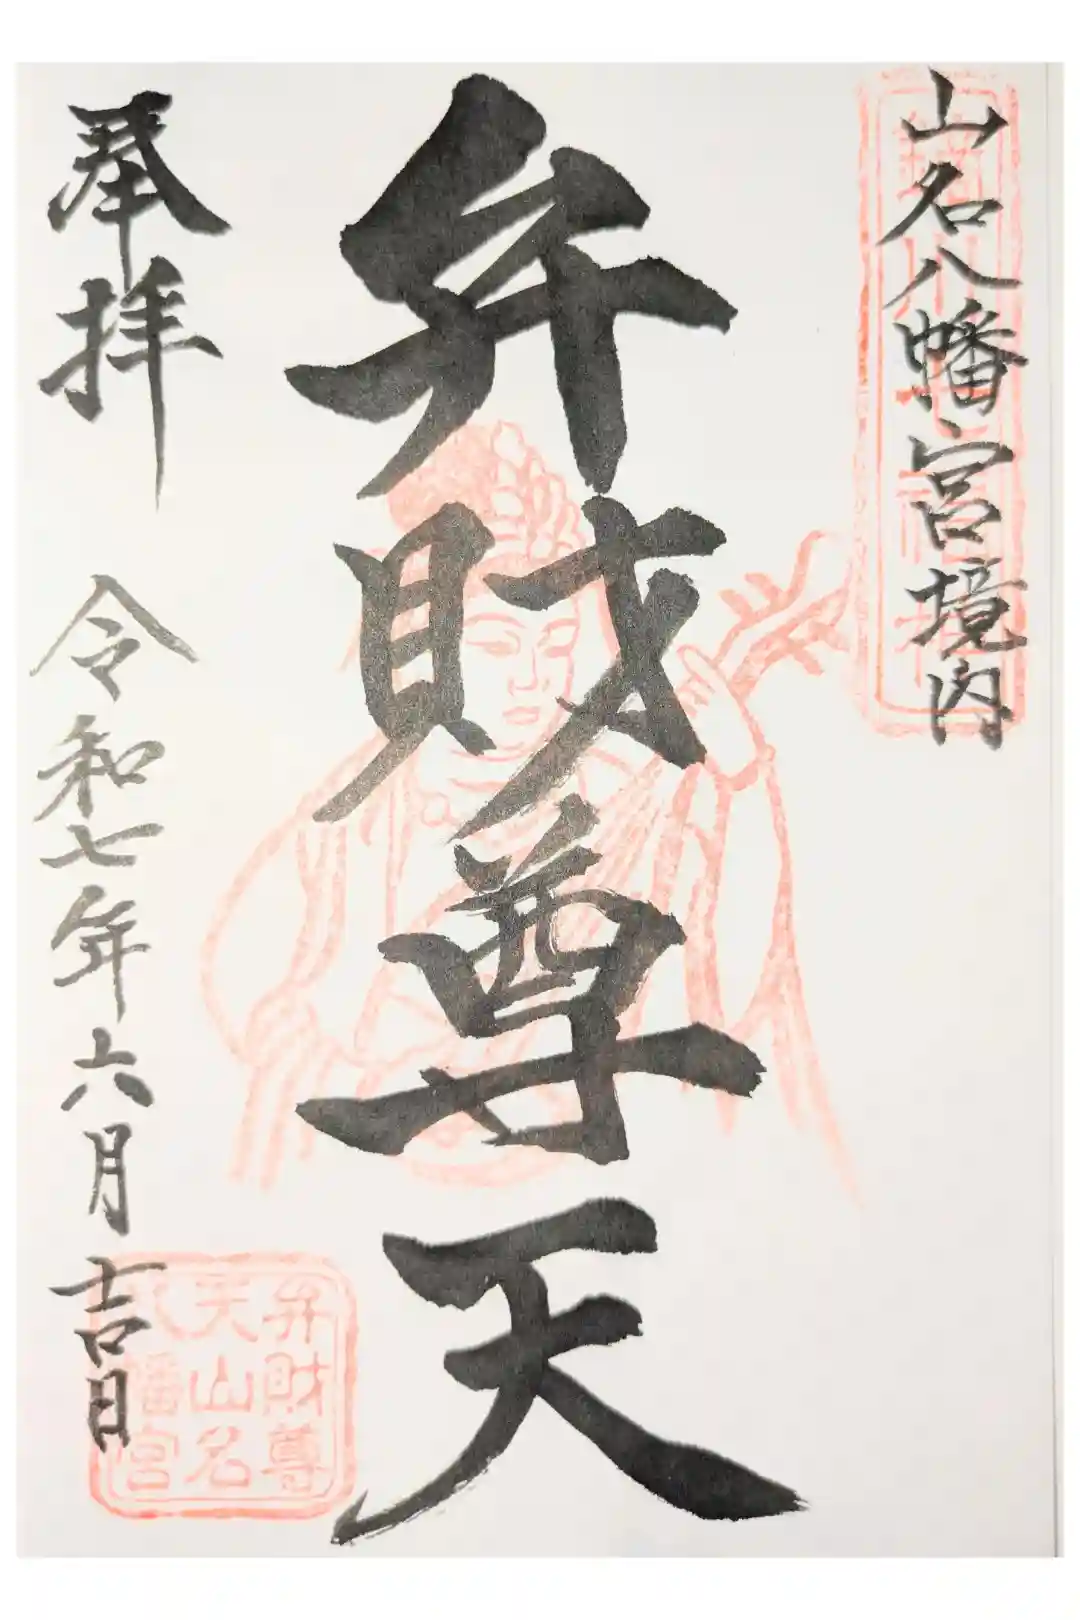 山名八幡宮境内
弁財尊天
奉拝
令和七年六月吉日
弁財尊
天山名
八幡宮